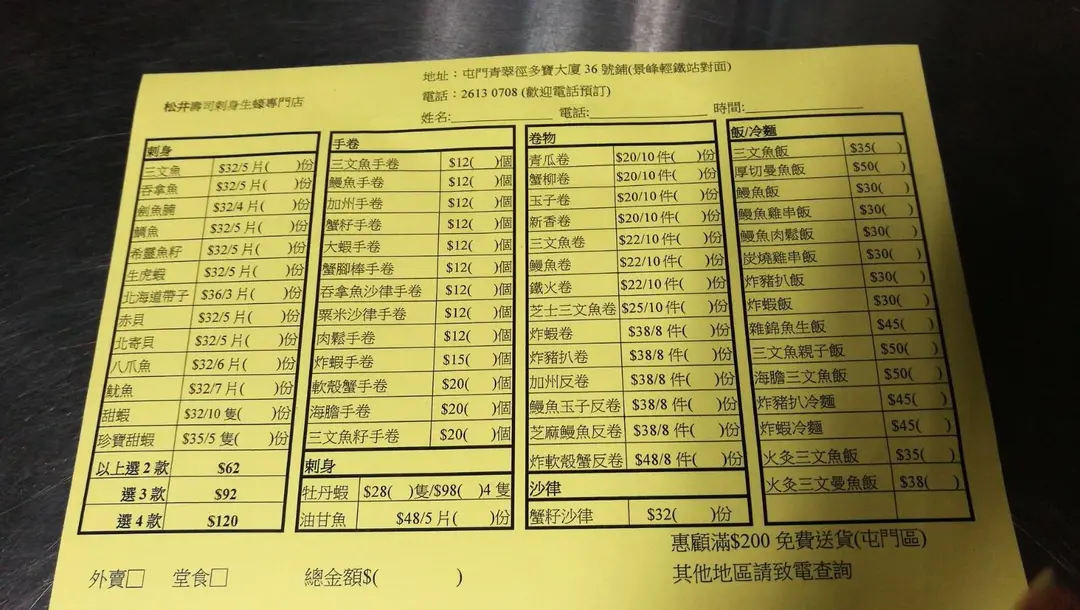 地址：屯門青翠徑多寶大廈 36 號鋪(景峰輕鐵站對面)
松井壽司刺身生蠔專門店
電話：2613 0708 (歡迎電話預訂)
姓名:____________ 電話:____________ 時間:____________
刺身
三文魚 $32/5 片( )份
吞拿魚 $32/5 片( )份
劍魚腩 $32/4 片( )份
鯛魚 $32/5 片( )份
希靈魚籽 $32/5 片( )份
生虎蝦 $32/5 片( )份
北海道帶子 $36/3 片( )份
赤貝 $32/5 片( )份
北寄貝 $32/5 片( )份
八爪魚 $32/6 片( )份
魷魚 $32/7 片( )份
甜蝦 $32/10 隻( )份
珍寶甜蝦 $35/5 隻( )份
以上選 2 款 $62
選 3 款 $92
選 4 款 $120
手卷
三文魚手卷 $12( )個
鰻魚手卷 $12( )個
加州手卷 $12( )個
蟹籽手卷 $12( )個
大蝦手卷 $12( )個
蟹腳棒手卷 $12( )個
吞拿魚沙律手卷 $12( )個
粟米沙律手卷 $12( )個
肉鬆手卷 $12( )個
炸蝦手卷 $15( )個
軟殼蟹手卷 $20( )個
海膽手卷 $20( )個
三文魚籽手卷 $20( )個
刺身
牡丹蝦 $28( )隻/$98( )4 隻
油甘魚 $48/5 片( )份
卷物
青瓜卷 $20/10 件( )份
蟹柳卷 $20/10 件( )份
玉子卷 $20/10 件( )份
新香卷 $20/10 件( )份
三文魚卷 $22/10 件( )份
鰻魚卷 $22/10 件( )份
鐵火卷 $22/10 件( )份
芝士三文魚卷 $25/10 件( )份
炸蝦卷 $38/8 件( )份
炸豬扒卷 $38/8 件( )份
加州反卷 $38/8 件( )份
鰻魚玉子反卷 $38/8 件( )份
芝麻鰻魚反卷 $38/8 件( )份
炸軟殼蟹反卷 $48/8 件( )份
沙律
蟹籽沙律 $32( )份
飯/冷麵
三文魚飯 $35( )
厚切曼魚飯 $50( )
鰻魚飯 $30( )
鰻魚雞串飯 $30( )
鰻魚肉鬆飯 $30( )
炭燒雞串飯 $30( )
炸豬扒飯 $30( )
炸蝦飯 $30( )
雜錦魚生飯 $45( )
三文魚親子飯 $50( )
海膽三文魚飯 $50( )
炸豬扒冷麵 $45( )
炸蝦冷麵 $45( )
火灸三文魚飯 $35( )
火灸三文曼魚飯 $38( )
惠顧滿$200 免費送貨(屯門區)
外賣□ 堂食□ 總金額$( )
其他地區請致電查詢